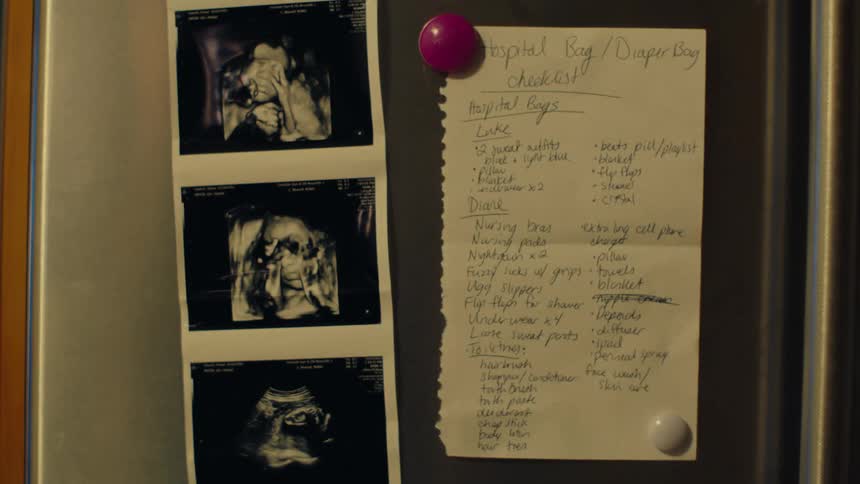 Hospital Bag / Diaper Bag
Checklist
Hospital Bags
Luke
• 2 sweat outfits
black + light blue
• pillow
• blanket
underwear x2
• beats pill/playlist
• blanket
• flip flips
•
• crystal
Diane
Nursing bras
Nursing pads
Nightgown x2
Fuzzy socks w/ grips
Ugg slippers
Flip flips for shower
Underwear x4
Loose sweat pants
• Toiletries:
hairbrush
shampoo/conditioner
toothbrush
tooth paste
deodorant
chap stick
body lotion
hair ties
• extra long cell phone
charger
• pillow
• towels
• blanket
• nipple cream
• Depends
• diffuser
• ipad
• perineal spray
face wash/
skin care